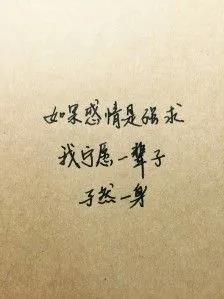 如果感情是强求
我宁愿一辈子
孑然一身